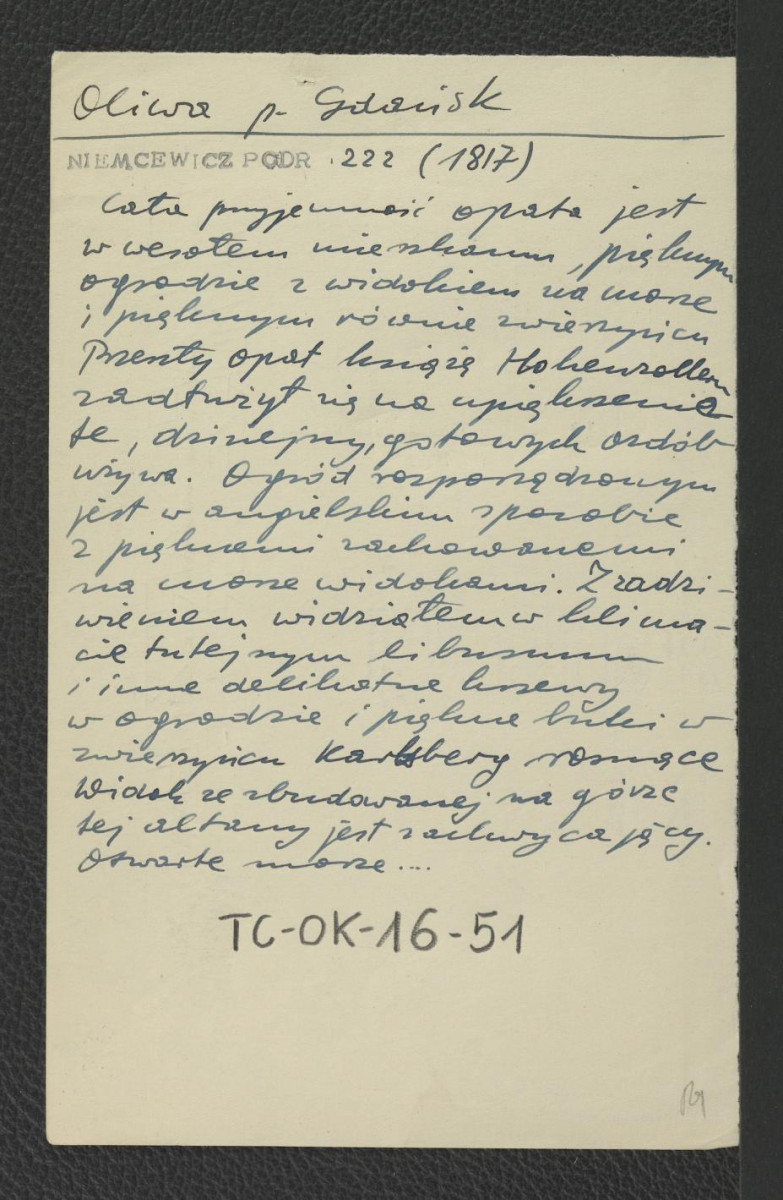 Oliwa p. Gdańsk
NIEMCEWICZ PODR. 222 (1817)
Cała przyjemność opata jest
w wesołem mieszkaniu, pięknym
ogrodzie z widokiem na morze
i pięknym równie zwierzyńcu
Przeszły opat książę Hohenzollern
zadłużył się na upiększenia
te, dzisiejszy, gotowych ozdób
używa. Ogród rozporządzonym
jest w angielskim sposobie
z pięknemi zachowanemi
na morze widokami. Z zadzi-
wieniem widziałem w klima-
cie tutejszym
i inne delikatne krzewy
w ogrodzie i piękne buki w
zwierzyńcu Karlsberg rosnące
Widok ze zbudowanej na górze
tej altany jest zachwycający.
Otwarte morze...
TC-OK-16-51